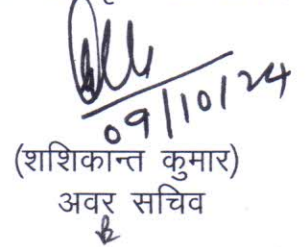 09/10/24
(शशिकान्त कुमार)
अवर सचिव